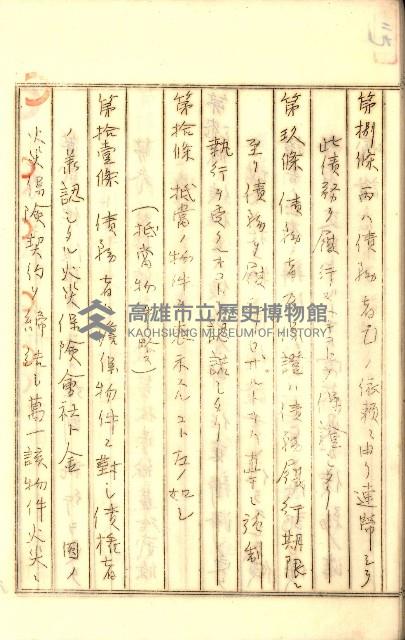 第捌條 丙ハ債務者乙ノ依頼ニ由リ連帶シテ
此債務ヲ履行スルコトヲ保證シタリ
第玖條 債務者及 證人債務履行期限ニ
至リ債務ヲ履 セサルトキハ直チニ强制
執行ヲ受ク 認諾シタリ
第拾條 抵當ノ物件ヲ表示スルコト左ノ如シ
(抵當物件 略ス)
第拾壹條 債務者ハ擔保物件ニ對シ債權者
ノ承認シタル火災保險會社ト金 圓ノ
火災保險契約ヲ締結シ萬一該物件火災ニ
高雄市立歷史博物館
KAOHSIUNG MUSEUM OF HISTORY